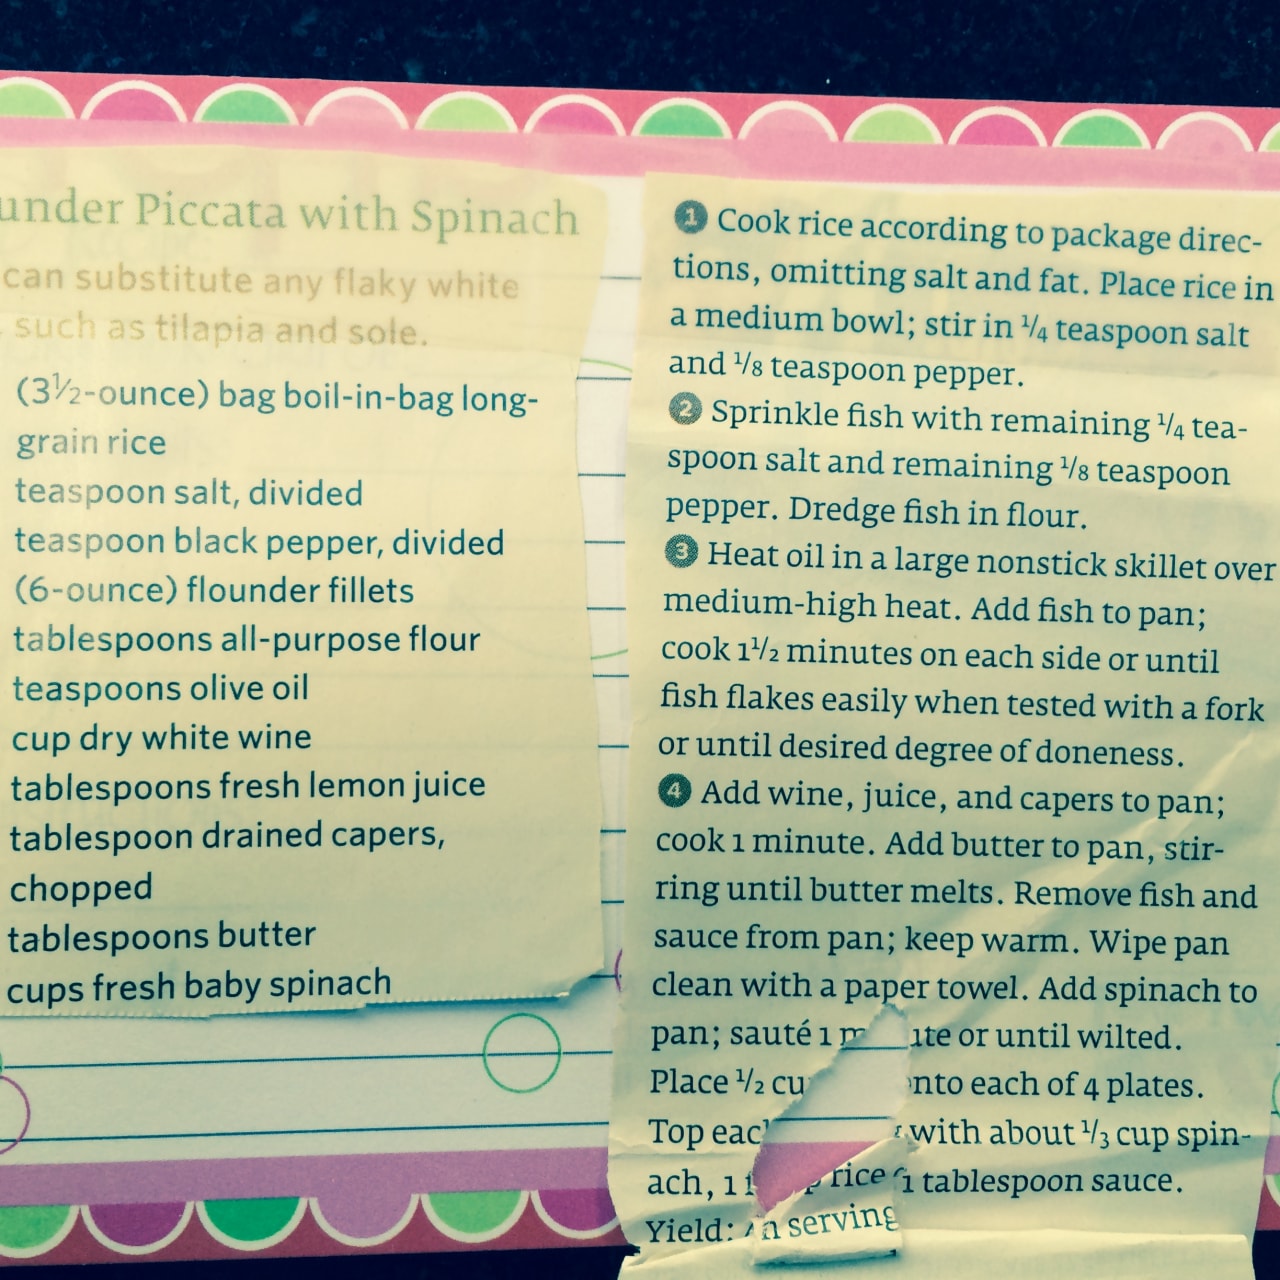 under Piccata with Spinach
can substitute any flaky white
such as tilapia and sole.
(3½-ounce) bag boil-in-bag long-
grain rice
teaspoon salt, divided
teaspoon black pepper, divided
(6-ounce) flounder fillets
tablespoons all-purpose flour
teaspoons olive oil
cup dry white wine
tablespoons fresh lemon juice
tablespoon drained capers,
chopped
tablespoons butter
cups fresh baby spinach
1 Cook rice according to package direc-
tions, omitting salt and fat. Place rice in
a medium bowl; stir in ¼ teaspoon salt
and ⅛ teaspoon pepper.
2 Sprinkle fish with remaining ¼ tea-
spoon salt and remaining ⅛ teaspoon
pepper. Dredge fish in flour.
3 Heat oil in a large nonstick skillet over
medium-high heat. Add fish to pan;
cook 1½ minutes on each side or until
fish flakes easily when tested with a fork
or until desired degree of doneness.
4 Add wine, juice, and capers to pan;
cook 1 minute. Add butter to pan, stir-
ring until butter melts. Remove fish and
sauce from pan; keep warm. Wipe pan
clean with a paper towel. Add spinach to
pan; sauté 1 m ute or until wilted.
Place ½ cu nto each of 4 plates.
Top eac with about ⅓ cup spin-
ach, 1 rice 1 tablespoon sauce.
Yield: serving